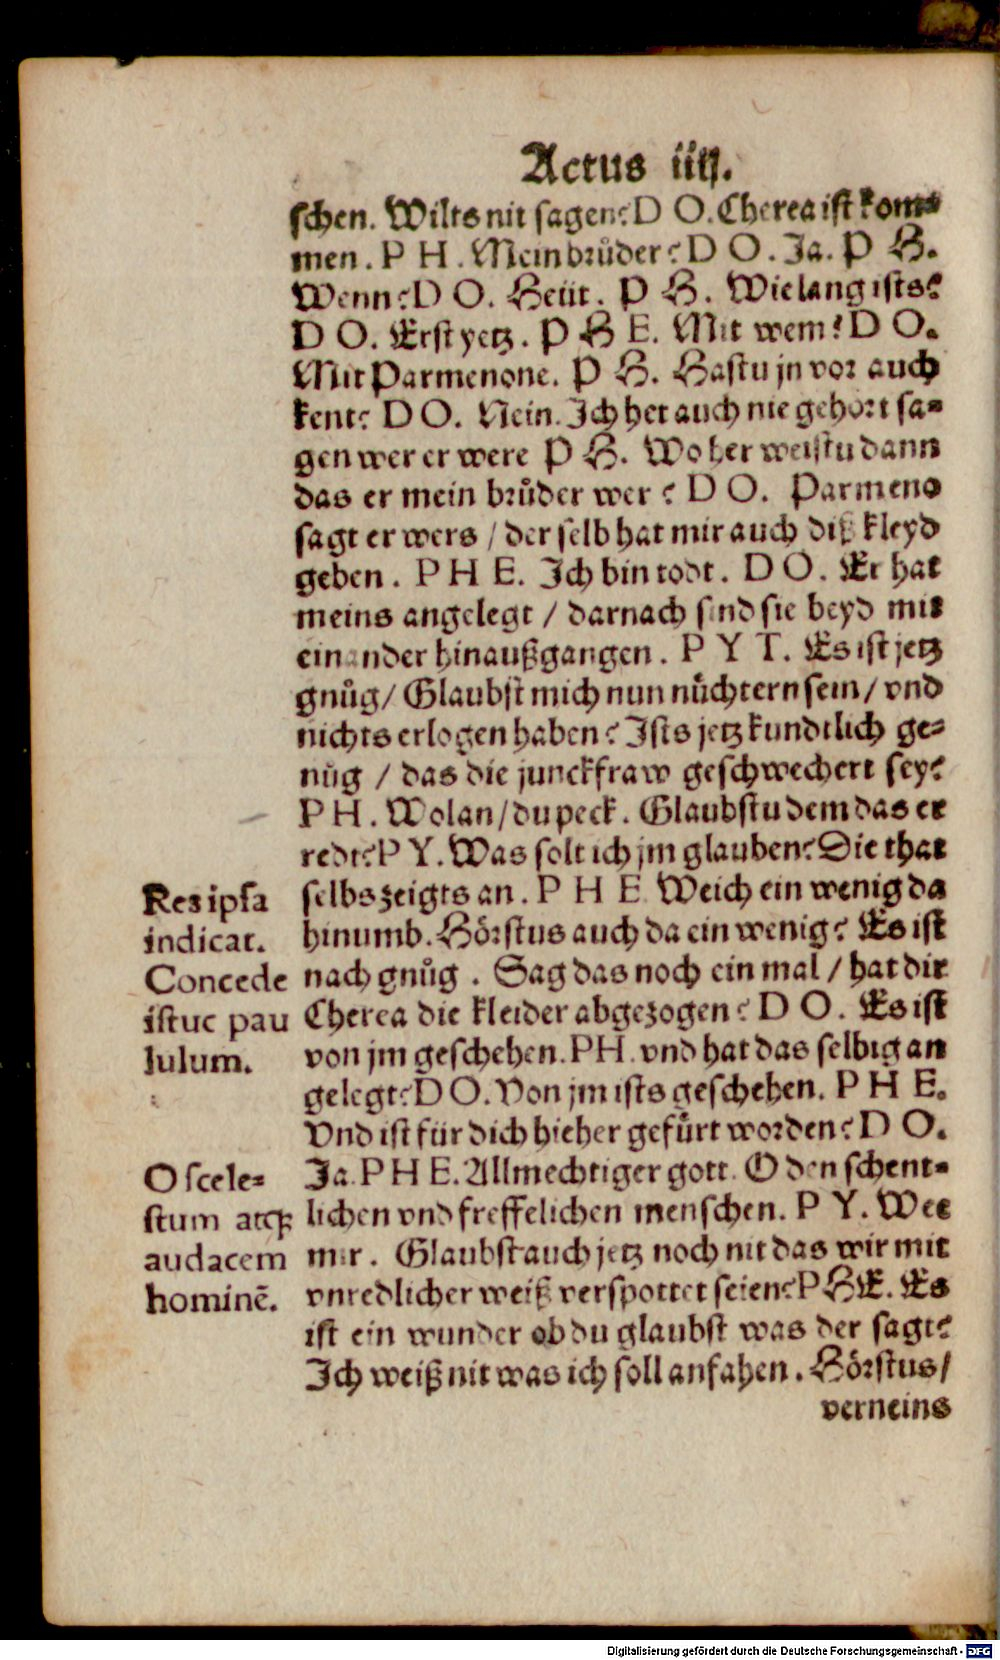 Actus iiij.
schen. Wilts nit sagen? D O. Cherea ist kom⸗
men. P H. Mein bruͦder? D O. Ja. P H.
Wenn? D O. Heüt. P H. Wie lang ists?
D O. Erst yetz. P H E. Mit wem? D O.
Mit Parmenone. P H. Hastu jn vor auch
kent? D O. Nein. Ich het auch nie gehört sa⸗
gen wer er were P H. Wo her weistu dann
das er mein bruͦder wer? D O. Parmeno
sagt er wers / der selb hat mir auch diß kleyd
geben. P H E. Ich bin todt. D O. Er hat
meins angelegt / darnach sind sie beyd mit
einander hinaußgangen. P Y T. Es ist jetz
gnuͦg / Glaubst mich nun nüchtern sein / vnd
nichts erlogen haben? Ists jetz kundtlich ge⸗
nuͦg / das die junckfraw geschwechert sey?
P H. Wolan / du peck. Glaubstu dem das er
redt? P Y. Was solt ich jm glauben? Die that
selbs zeigts an. P H E Weich ein wenig da
hinumb. Hörstus auch da ein wenig? Es ist
nach gnuͦg. Sag das noch ein mal / hat dir
Cherea die kleider abgezogen? D O. Es ist
von jm geschehen. PH. vnd hat das selbig an
gelegt? D O. Von jm ists geschehen. P H E.
Vnd ist für dich hieher gefürt worden? D O.
Ja. P H E. Allmechtiger gott. O den schent⸗
lichen vnd freffelichen menschen. P Y. Wee
mir. Glaubst auch jetz noch nit das wir mit
vnredlicher weiß verspottet seien? P H E. Es
ist ein wunder ob du glaubst was der sagt?
Ich weiß nit was ich soll anfahen. Hörstus /
verneins
Res ipsa
indicat.
Concede
istuc pau
lulum.
O scele⸗
stum atqꝫ
audacem
hominē.
Digitalisierung gefördert durch die Deutsche Forschungsgemeinschaft - DFG